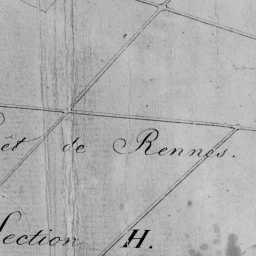 êt de Rennes.
Section H.